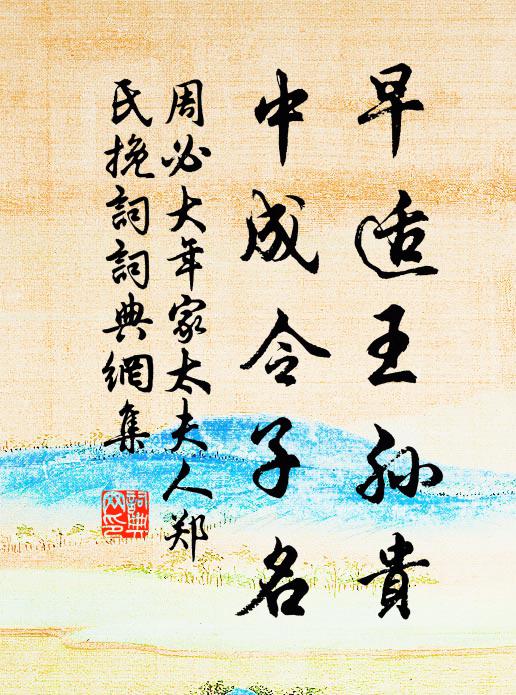 早适王孙貴
中成令子名
周必大年家太夫人郑
氏挽詞詞典網集